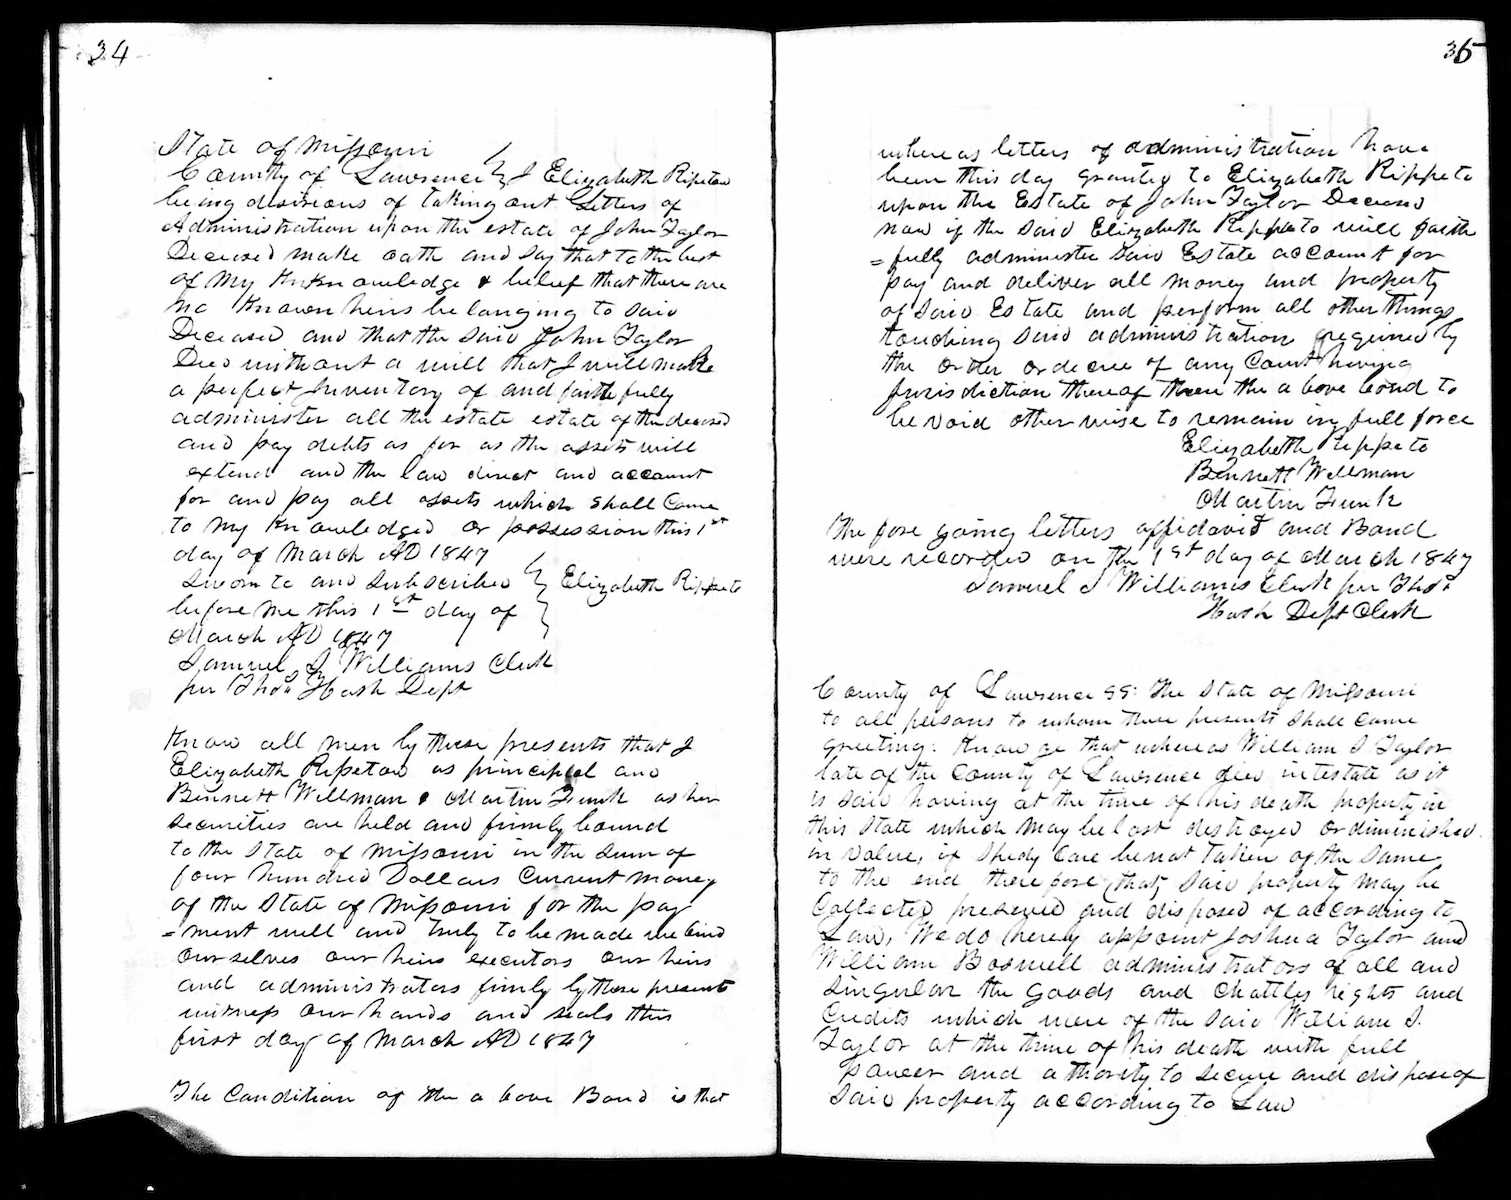 34
State of Missouri
County of Lawrence } I Elizabeth Ripetoe
being desirious of taking out Letters of
Administration upon the estate of John Taylor
Deceised make oath and say that to the best
of my knknowledge & belief that there are
no known heirs belonging to said
Deceased and that the said John Taylor
Died without a will that I will make
a perfect Inventory of and faithfully
administer all the estate estate of the deceased
and pay debts as far as the assets will
extend and the law direct and account
for and pay all assets which shall come
to my knowledged or possession this 1st
day of March AD 1847
Sworn to and subscribed } Elizabeth Rippeto
before me this 1st day of
March AD 1847
Samuel J Williams Clerk
per Thos Hash Dept
Know all men by these presents that I
Elizabeth Ripetoe as principal and
Bennett Wellman & Martin Funk as her
securities are held and firmly bound
to the State of Missouri in the sum of
four hundred Dollars current money
of the State of Missouri for the pay
=ment well and truly to be made we bind
ourselves our heirs executors our heirs
and administrators firmly by these presents
witness our hands and seals this
first day of March AD 1847
The Condition of the above Bond is that
35
whereas letters of administration have
been this day granted to Elizabeth Rippeto
upon the Estate of John Taylor Deceased
now if the said Elizabeth Rippeto will faith
=fully administer said Estate account for
pay and deliver all money and property
of said Estate and perform all other things
touching said administration required by
the order or decree of any Court having
jurisdiction thereof then the above bond to
be void otherwise to remain in full force
Elizabeth Rippeto
Bennett Wellman
Martin Funk
The fore going letters affidavit and Bond
were recorded on the 1st day of March 1847
Samuel J Williams Clerk per Thos
Hash Dept Clerk
County of Lawrence ss: The State of Missouri
to all persons to whom these presents shall come
greeting: Know ye that whereas William S Taylor
late of the County of Lawrence died intestate as it
is said having at the time of his death property in
this State which may be lost destroyed or diminished
in value, if speedy care be not taken of the same
to the end therefore that said property may be
Collected preserved and disposed of according to
Law, We do hereby appoint Joshua Taylor and
William Boswell administrators of all and
singular the goods and chattles rights and
Credits which were of the said William S.
Taylor at the time of his death with full
power and athority to secure and dispose of
said property according to Law